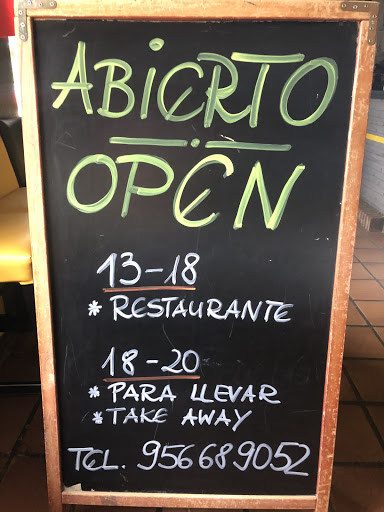 ABIERTO
OPEN
13-18
* RESTAURANTE
18-20
* PARA LLEVAR
* TAKE AWAY
TEL. 956689052